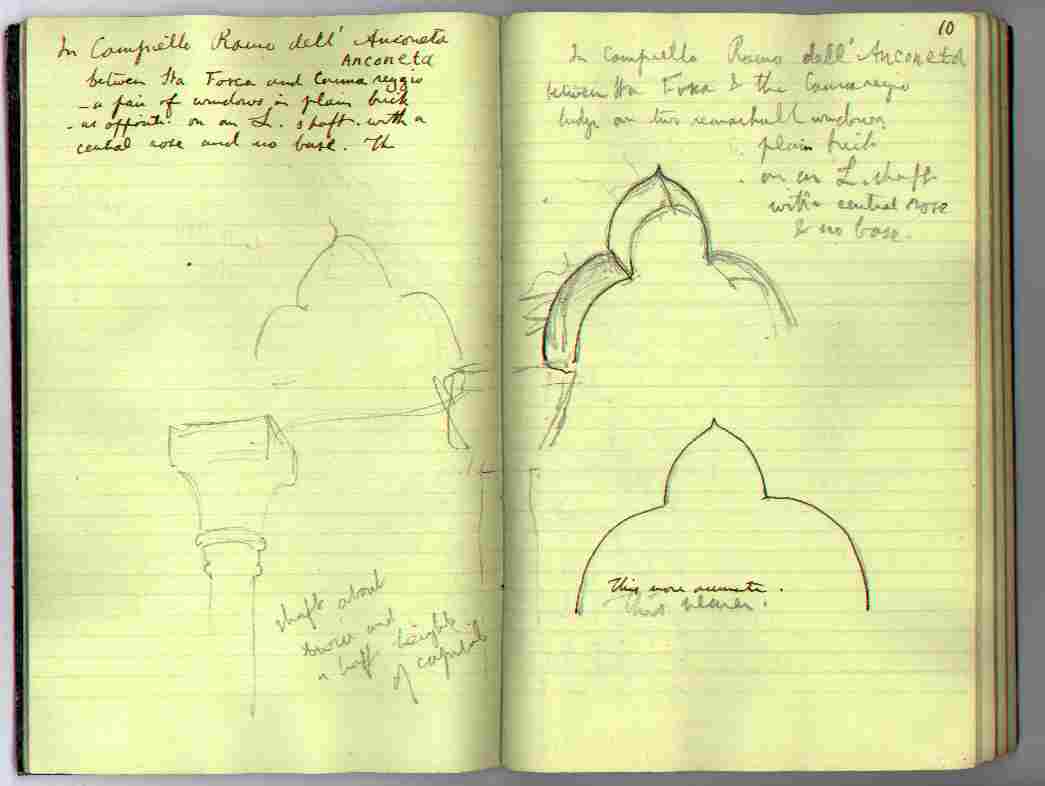 In Campiello Ramo dell' Anconeta
Anconeta
between Sta Fosca and Cannareggio
- a pair of windows in plain brick
- as opposite. on an L. shaft. with a
central rose and no base. Th
shaft about
twice and
a half height
of capital
10
In Campiello Ramo dell' Anconeta
between Sta Fosca & the Cannaregio
bridge are two remarkable windows
plain brick
on an L. shaft
with central rose
& no base.
This more accurate.
This nearer.